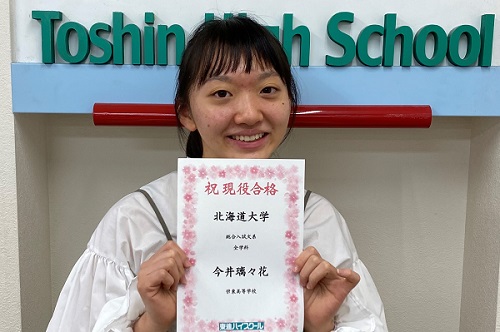 Toshin High School
祝 現役合格
北海道大学
総合入試文系
全学科
今井璃々花
東進ハイスクール